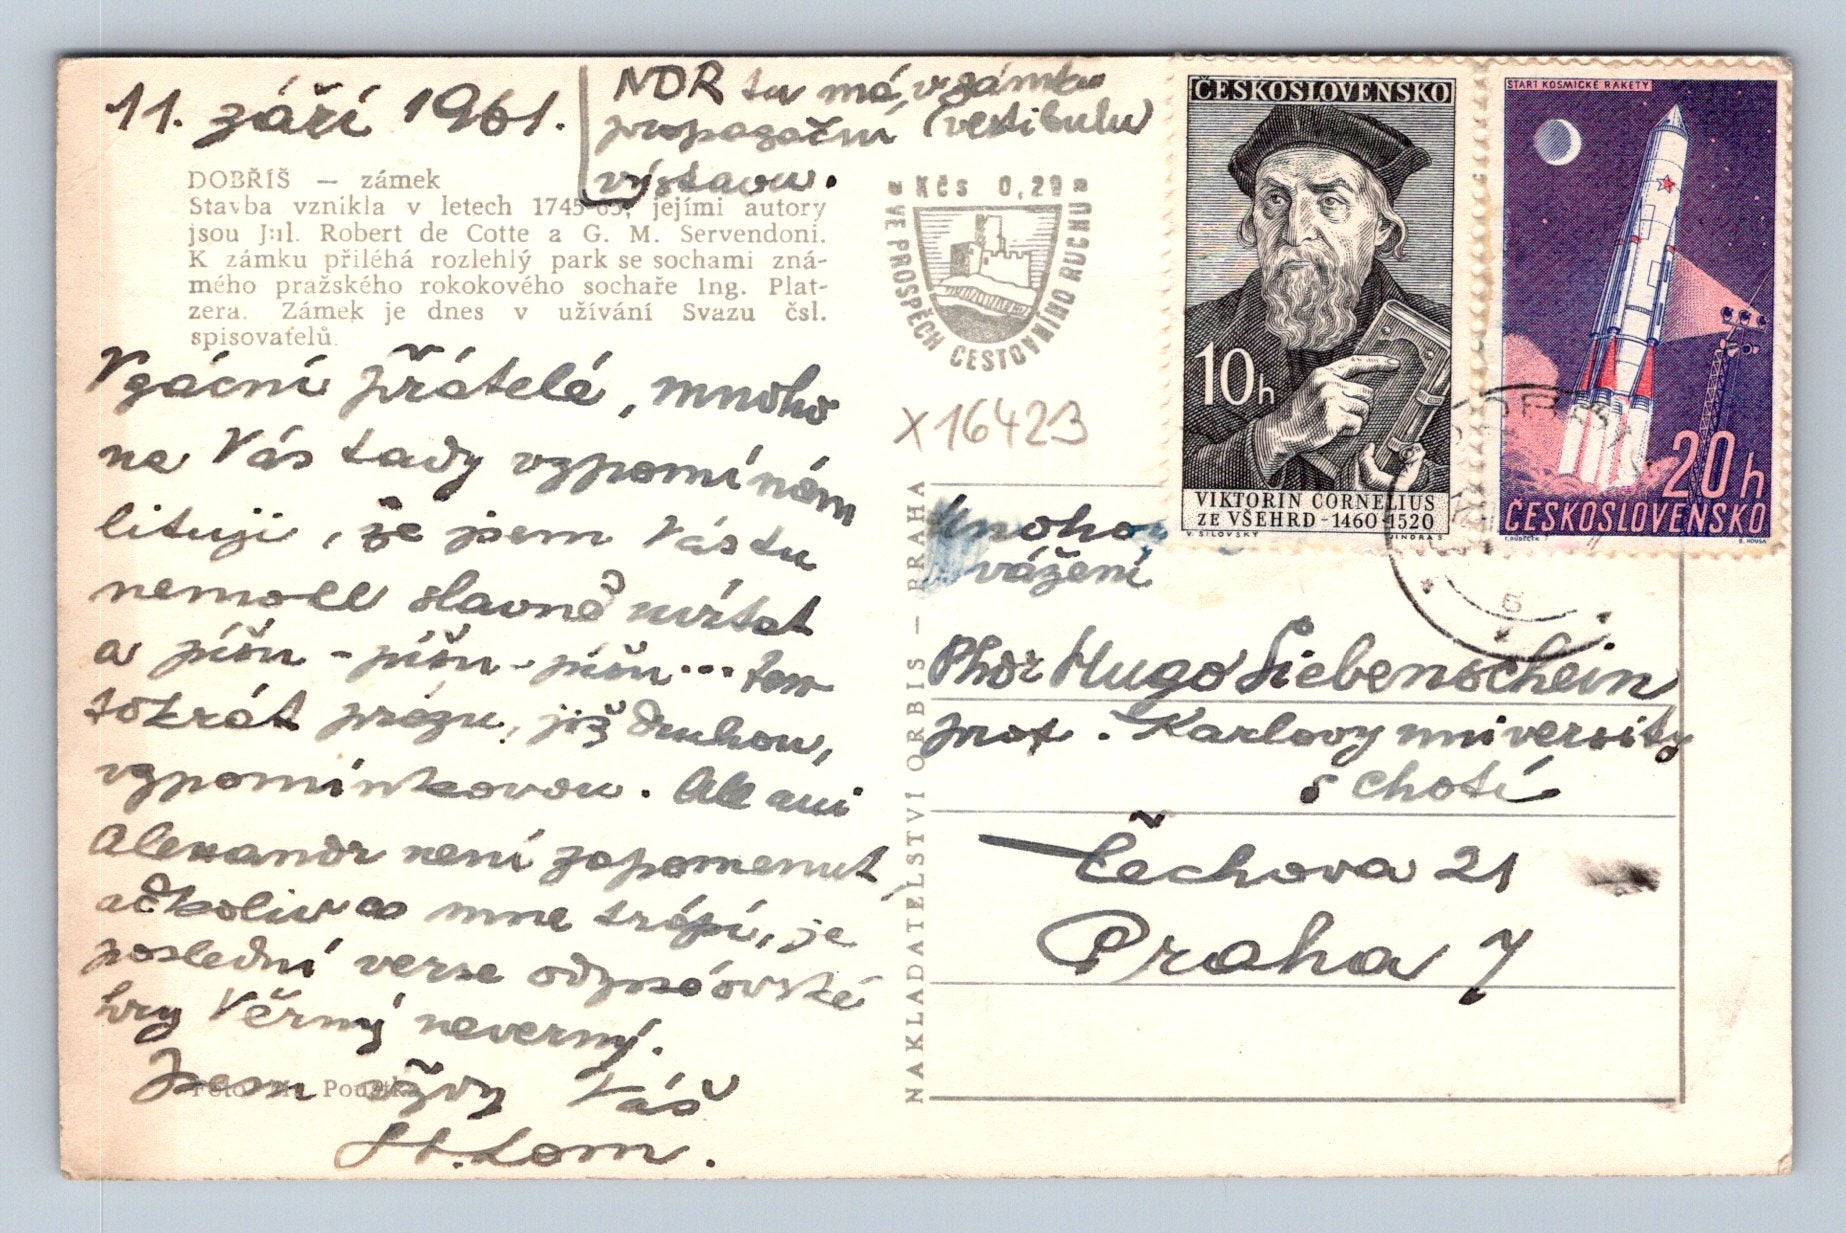 11. září 1961.
NDR tu má v zámku
propagační (vestibulu)
výstavu.
DOBŘÍŠ — zámek
Stavba vznikla v letech 1745-65, jejími autory
jsou Jul. Robert de Cotte a G. M. Servendoni.
K zámku přiléhá rozlehlý park se sochami zná-
mého pražského rokokového sochaře Ing. Plat-
zera. Zámek je dnes v užívání Svazu čsl.
spisovatelů.
Vzácní přátelé, mnoho
na Vás tady vzpomínám
lituji, že jsem Vás tu
nemohl slavně uvítat
a píšu - píšu - píšu... ten
tokrát prózu, již druhou,
vzpomínkovou. Ale ani
Alexandr není zapomenut,
ačkoliv co mne trápí, je
poslední verse odysseovské
hry Věrný nevěrný.
Jsem vždy Váš
St. Lom.
Foto Pou
Kčs 0,20
VE PROSPĚCH CESTOVNÍHO RUCHU
x16423
NAKLADATELSTVÍ ORBIS — PRAHA
ČESKOSLOVENSKO
10h
VIKTORIN CORNELIUS
ZE VŠEHRD - 1460-1520
V. SILOVSKÝ JINDRA S.
START KOSMICKÉ RAKETY
20h
ČESKOSLOVENSKO
Mnoho
vážení
Phdr Hugo Siebenschein
prof. Karlovy university
s chotí
Čechova 21
Praha 7